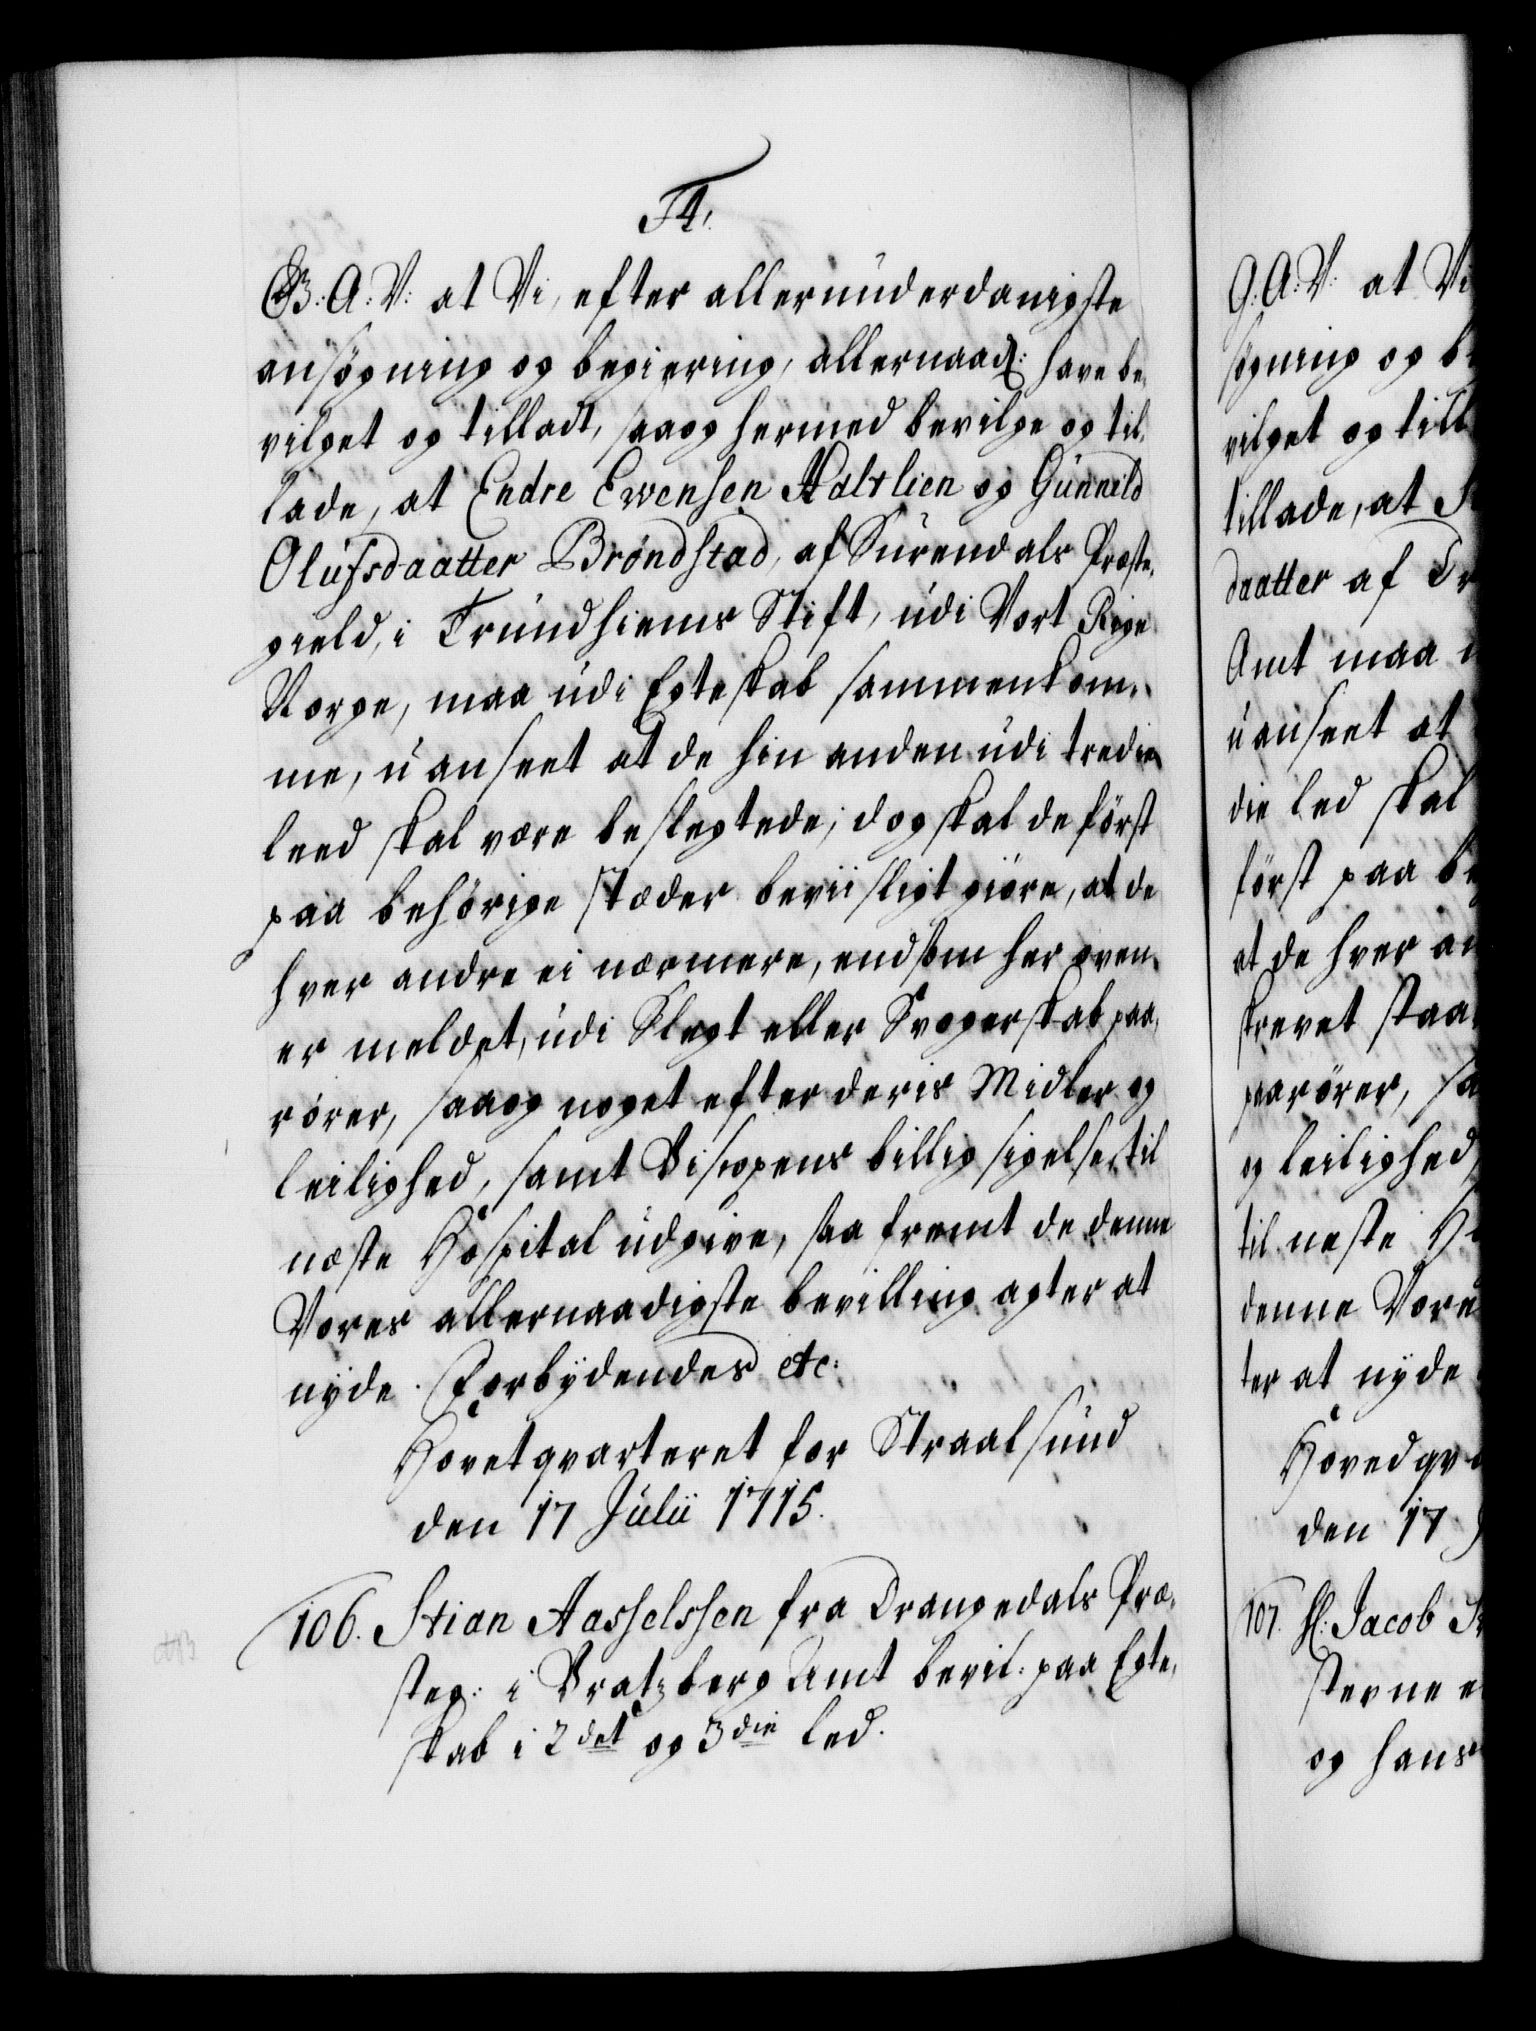 F4.
G: A: V: at Vi, efter allerunderdanigste
ansøgning og begiering, allernaad: have be-
vilget og tilladt, saaog hermed bevilge og til-
lade, at Endre Ewensen Haltlien og Gunnild
Olufsdaatter Brøndstad, af Surendals Præste-
gield, i Trundhiems Stift, udi Vort Rige
Norge, maa udi Egteskab sammenkom-
me, uanseet at de hin anden udi tredie
leed skal være beslegtede; dog skal de først
paa behørige stæder beviisligt giøre, at de
hver andre ei nærmere, end som her oven-
er meldet, udi Slegt eller Svogerskab paa-
rører, saaog noget efter deris Midler og
leilighed, samt Biscopens billig sigelse, til
næste Hospital udgive, saa fremt de denne
Vores allernaadigste bevilling agter at
nyde. Forbydendes etc:
Hovetqvarteret for Straalsund
den 17 Julii 1715.
106. Stian Aasselssen fra Drangedals Præ-
steg: i Bratzberg Amt bevil: paa Egte-
skab i 2det og 3die led.
G: A: V: at Vi
søgning og be
vilget og till
tillade, at
daatter af Tr
Amt maa
uanseet at
die led skal
først paa be
at de hver an
skrevet staa
paarører, sa
og leilighed,
til neste Ho
denne Vore
ter at nyde
Hovedqva
den 17
107. H: Jacob
sterne
og hans